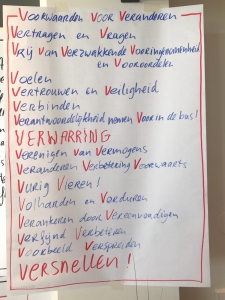 Voorwaarden Voor Veranderen
Vertragen en Vragen
Vrij Van Verzwakkende Vooringenomenheid
en Vooroordelen
Voelen
Vertrouwen en Veiligheid
Verbinden
Verantwoordelijkheid nemen Voor in de bus!
VERWARRING
Verenigen van Vermogens
Veranderen Verbetering Voorwaarts
Vurig Vieren!
Volharden en Voortduren
Verankeren door Vereenvoudigen
Verfijnd Verbeteren
Voorbeeld Verspreiden
VERSNELLEN!